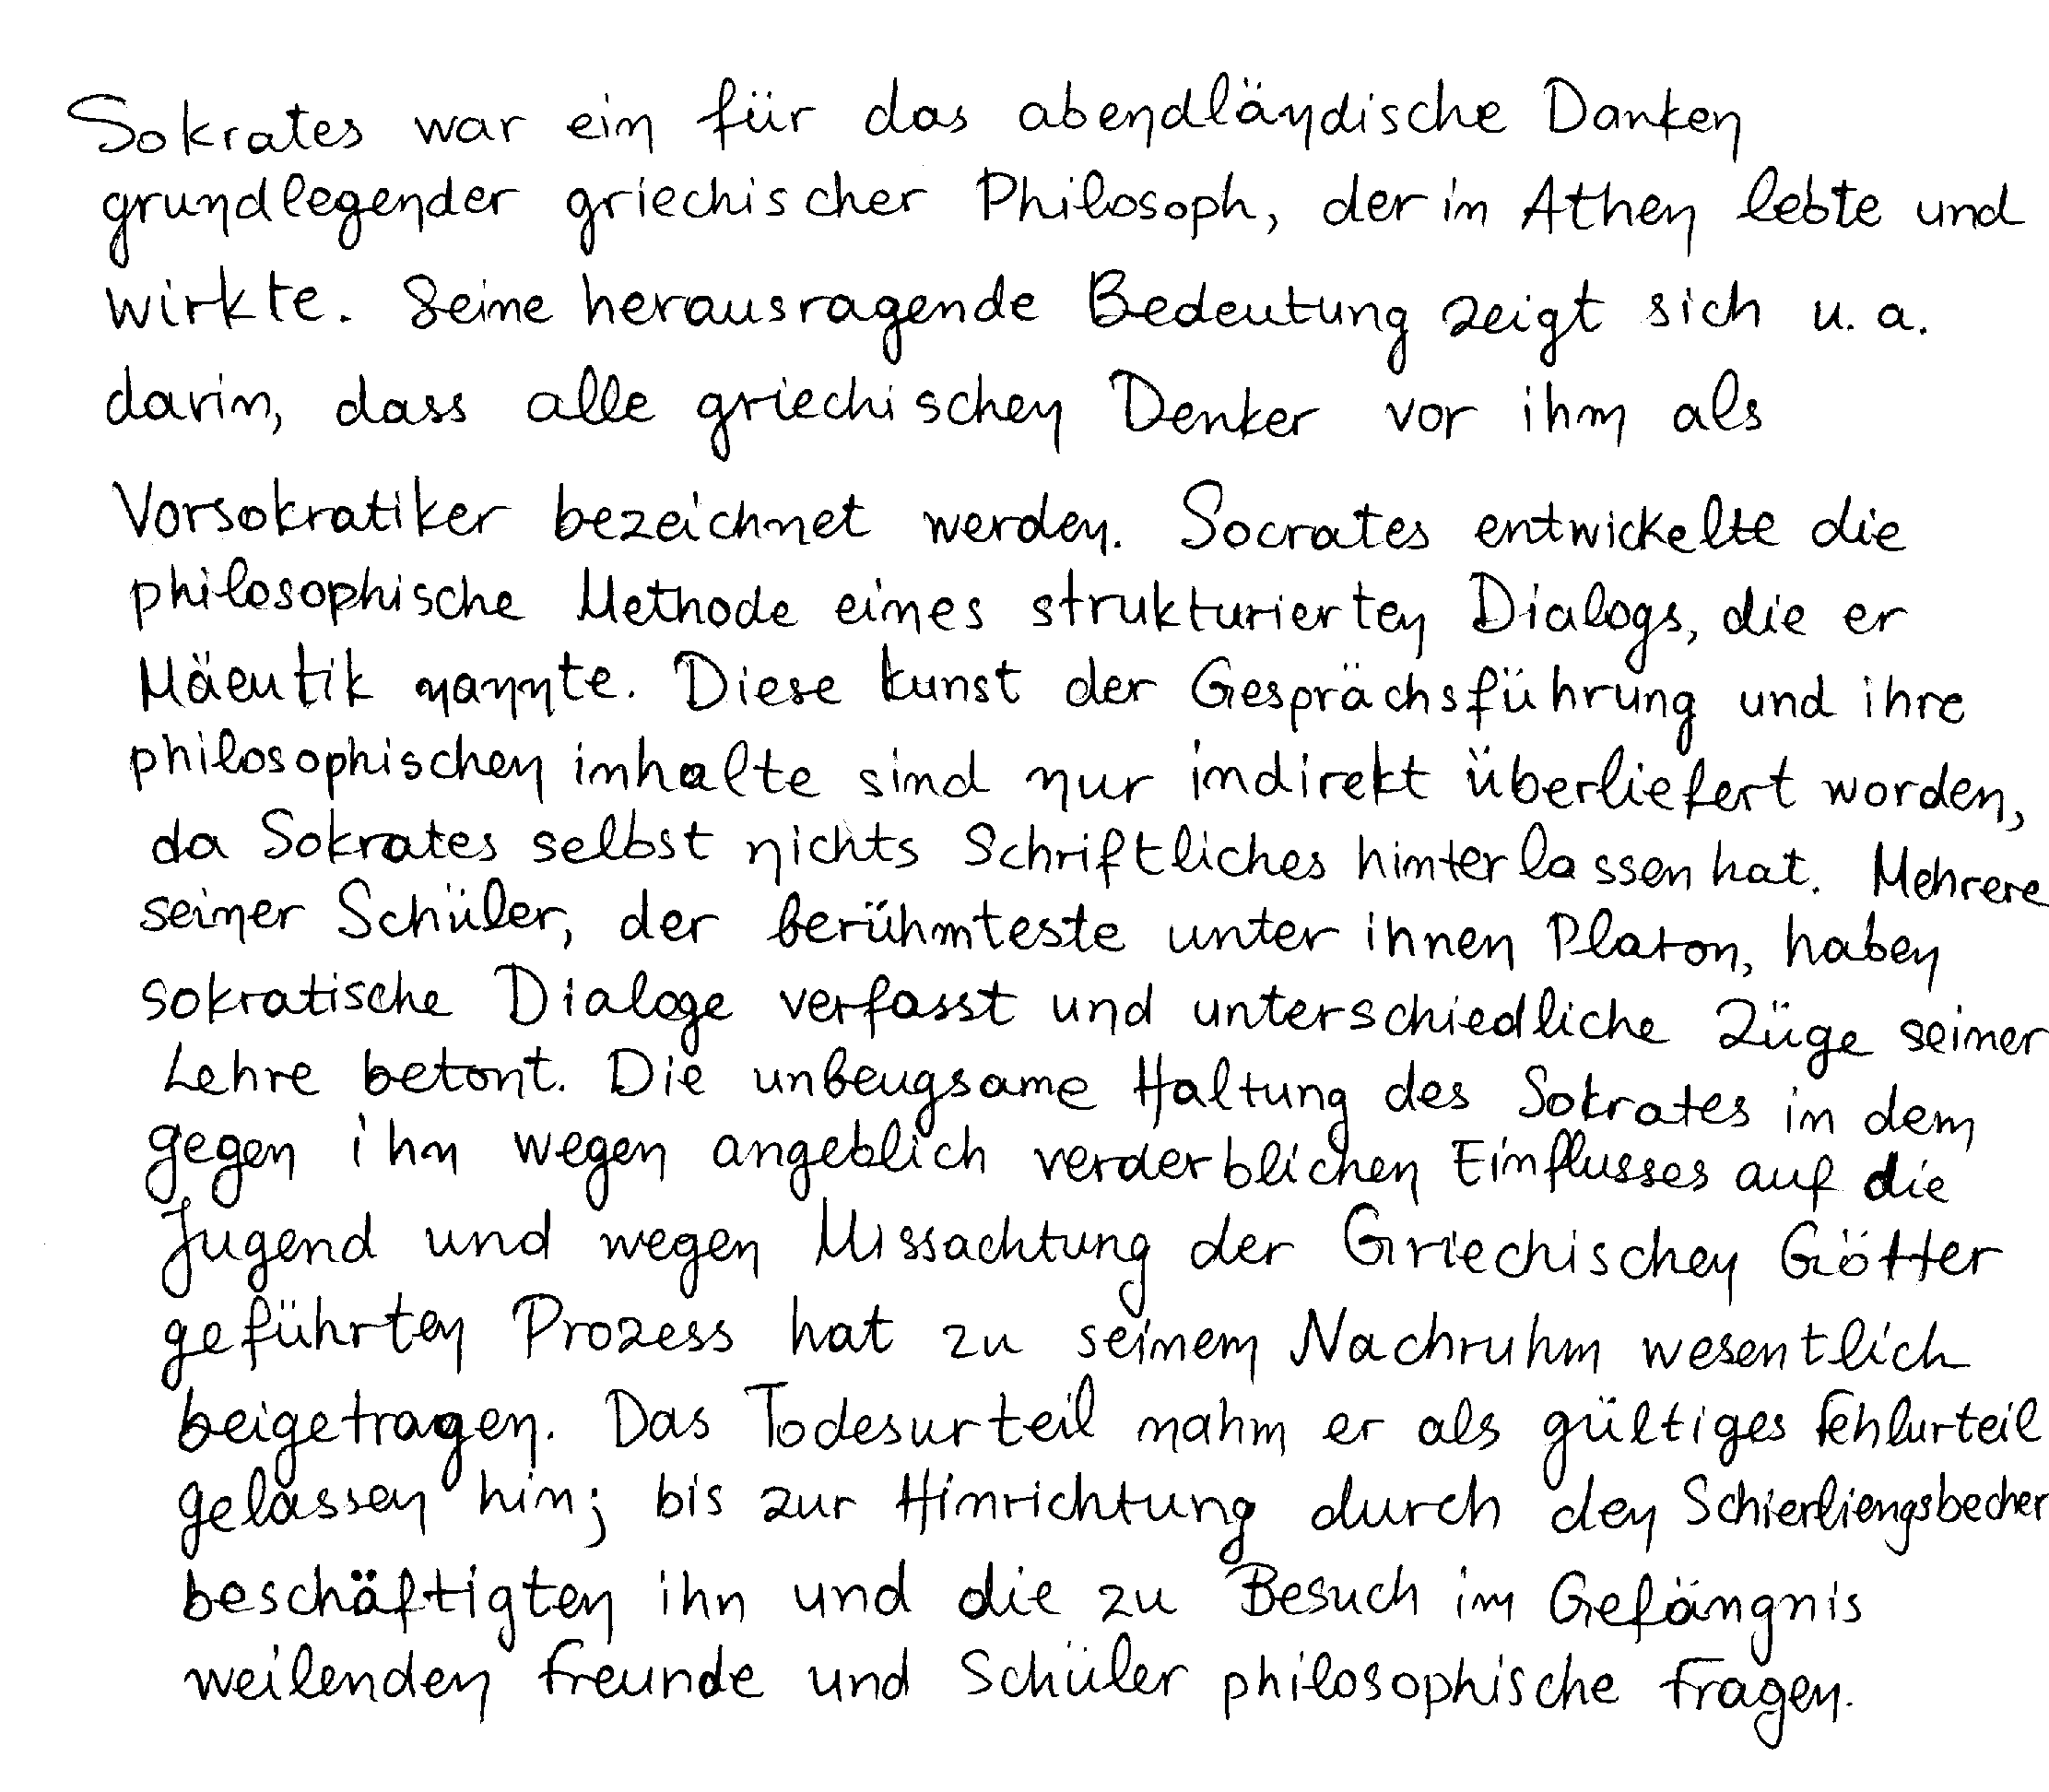 Sokrates war ein für das abendländische Danken
grundlegender griechischer Philosoph, der in Athen lebte und
wirkte. Seine herausragende Bedeutung zeigt sich u. a.
darin, dass alle griechischen Denker vor ihm als
Vorsokratiker bezeichnet werden. Socrates entwickelte die
philosophische Methode eines strukturierten Dialogs, die er
Mäeutik nannte. Diese kunst der Gesprächsführung und ihre
philosophischen inhalte sind nur indirekt überliefert worden,
da Sokrates selbst nichts Schriftliches hinterlassen hat. Mehrere
seiner Schüler, der berühmteste unter ihnen Platon, haben
sokratische Dialoge verfasst und unterschiedliche Züge seiner
Lehre betont. Die unbeugsame Haltung des Sokrates in dem
gegen ihn wegen angeblich verderblichen Einflusses auf die
Jugend und wegen Missachtung der Griechischen Götter
geführten Prozess hat zu seinem Nachruhm wesentlich
beigetragen. Das Todesurteil nahm er als gültiges fehlurteil
gelassen hin; bis zur Hinrichtung durch den Schierliengsbecher
beschäftigten ihn und die zu Besuch im Gefängnis
weilenden freunde und Schüler philosophische fragen.